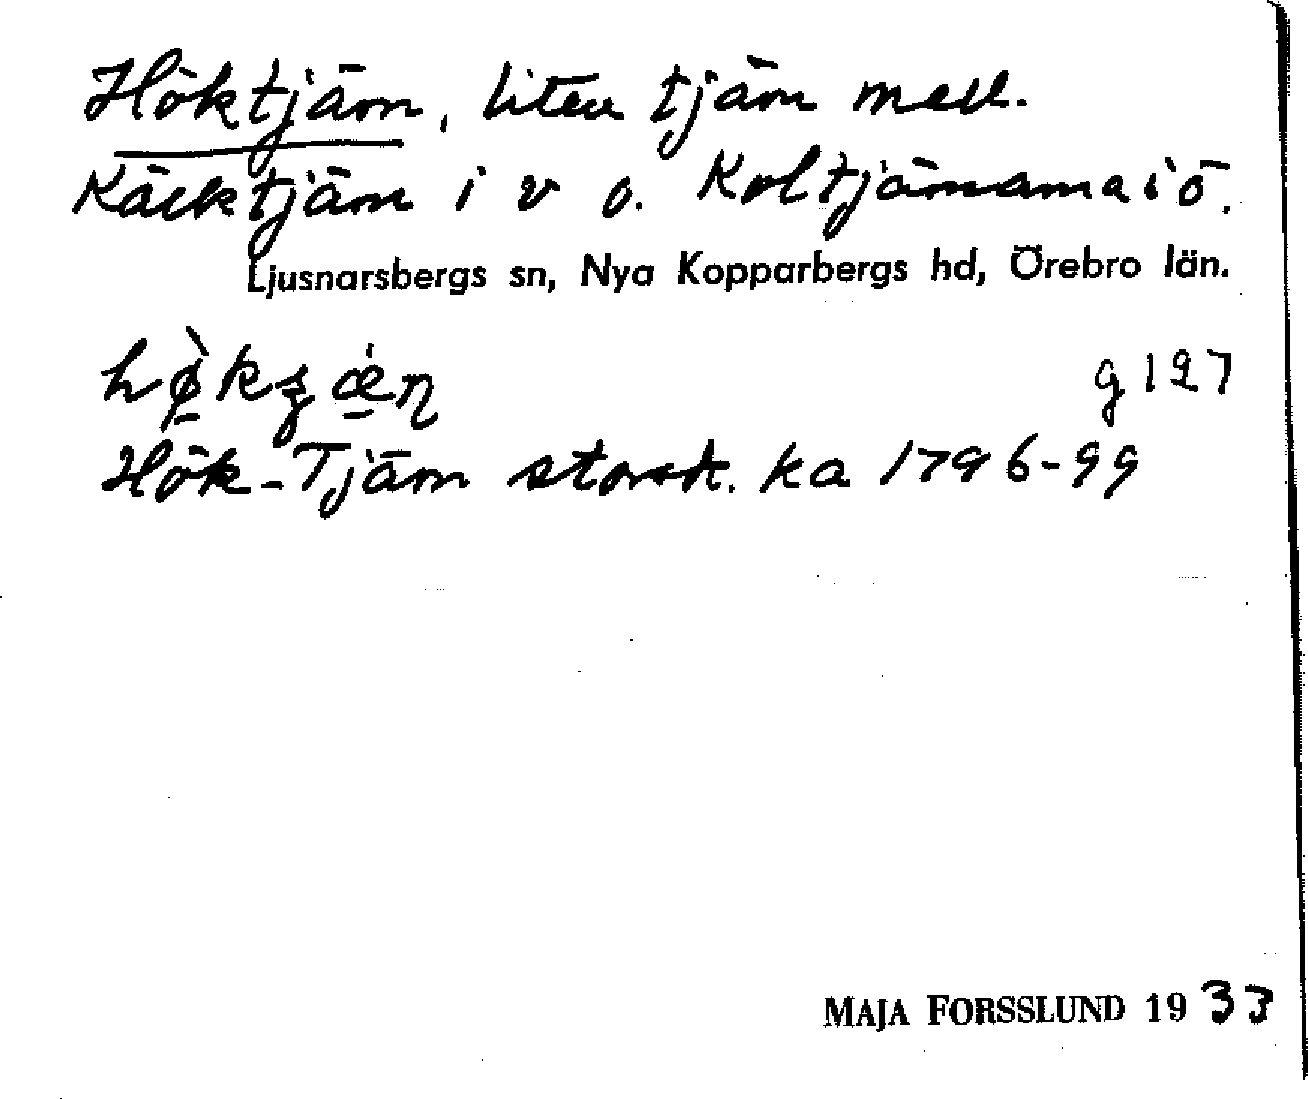 Höktjärn, liten tjärn mell.
Käcktjärn i v o. Koltjärnarna i ö.
Ljusnarsbergs sn, Nya Kopparbergs hd, Örebro län.
g 127
Hök-Tjärn storsk. ka 1796-99
MAJA FORSSLUND 1933